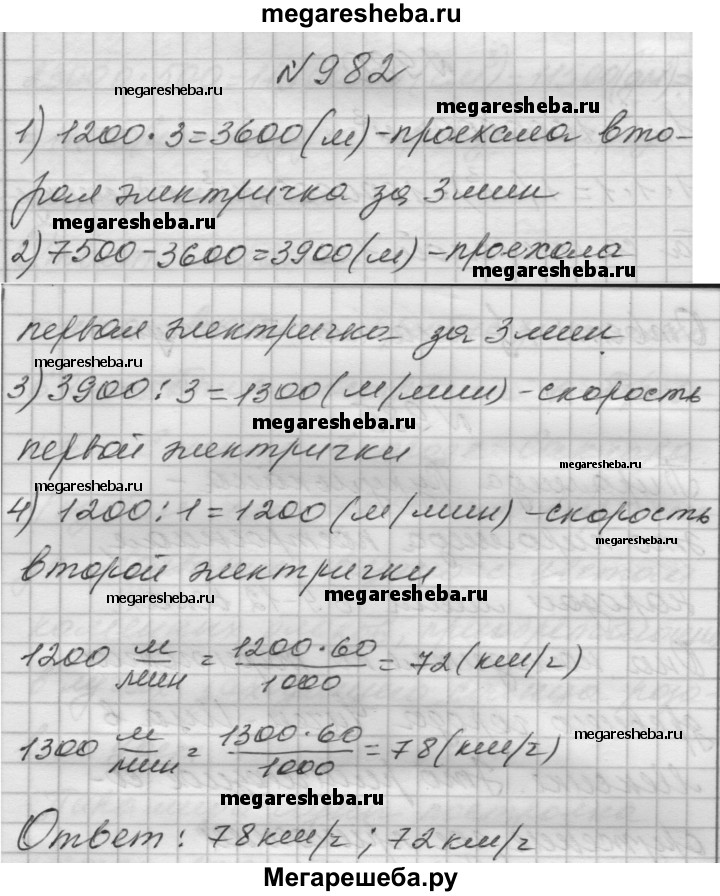 megaresheba.ru
№982
megaresheba.ru
megaresheba.ru
1) 1200·3=3600(м)-проехала вто-
рая электричка за 3 мин
megaresheba.ru
2) 7500-3600=3900(м)-проехала
megaresheba.ru
первая электричка за 3 мин.
megaresheba.ru
3) 3900:3=1300(м/мин)-скорость
megaresheba.ru
первой электрички
megaresheba.ru
megaresheba.ru
4) 1200:1=1200(м/мин)-скорость
megaresheba.ru
второй электрички
megaresheba.ru
megaresheba.ru
1200 м/мин = 1200·60/1000 = 72(км/г)
1300 м/мин = 1300·60/1000 = 78(км/г)
megaresheba.ru
megaresheba.ru
Ответ: 78км/г; 72км/г
Мегарешеба.ру